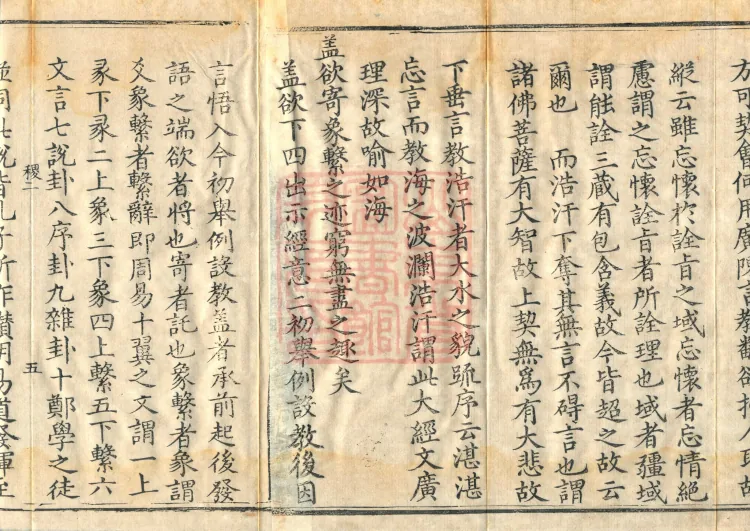 縱云雖忘懷於詮旨之域忘懷者忘情絕
慮謂之忘懷詮旨者所詮理也域者疆域
謂能詮三蔵有包含義故今皆超之故云
爾也 而浩汗下奪其無言不碍言也謂
諸佛菩薩有大智故上契無爲有大悲故
下垂言教浩汗者大水之貌䟽序云湛湛
忘言而教海之波瀾浩汗謂此大經文廣
理深故喻如海
盖欲寄象繫之迹窮無盡之趣矣
盖欲下四出示經意二初舉例設教後因
言悟入今初舉例設教盖者承前起後發
語之端欲者將也寄者託也象繫者象謂
爻象繫者繫辭即周易十翼之文謂一上
彖下彖二上象三下象四上繫五下繫六
文言七說卦八序卦九雜卦十鄭學之徒
稷二 五
並同此說皆孔子所作贊明易道發揮至